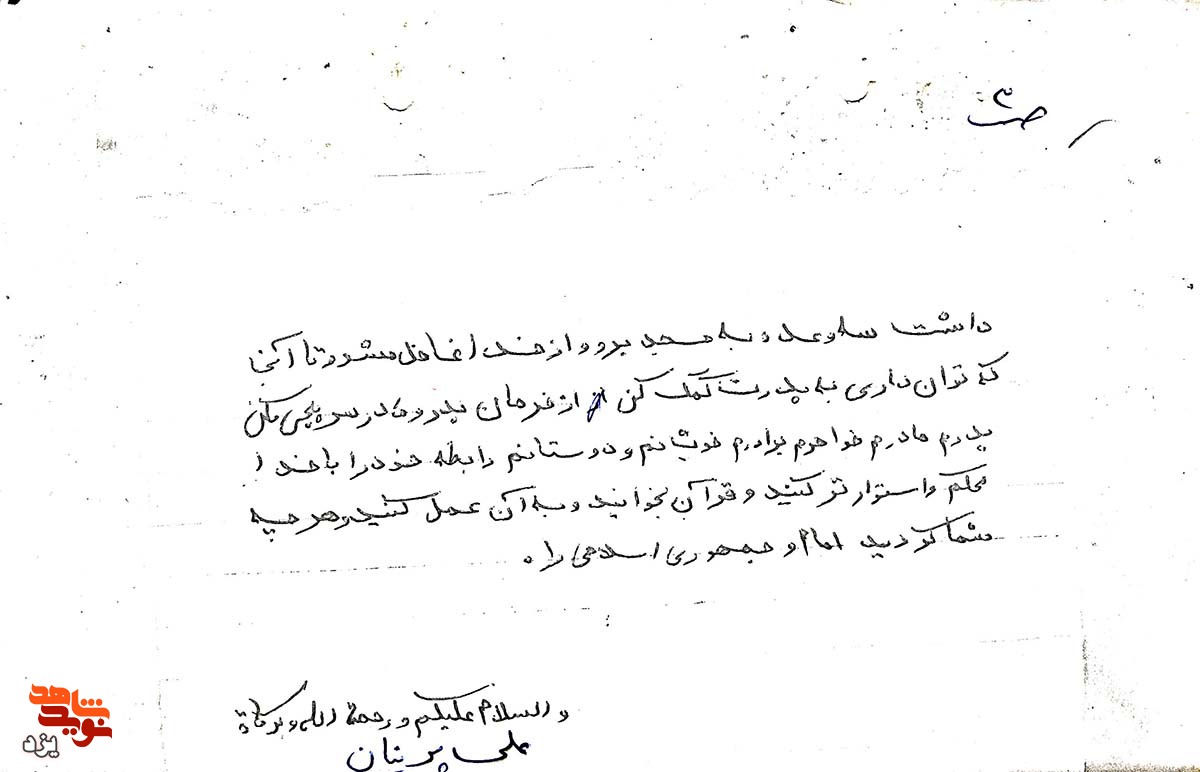 ص ۳
داشت سعی و به مسجد برو و از خدا غافل مشو و تا آنجا
که توان داری به پدرت کمک کن از فرمان پدر و مادر سرپیچی مکن
پدرم مادرم خواهرم برادرم خویشانم و دوستانم رابطه خود را با خدا
محکم و استوار تر کنید و قرآن بخوانید و به آن عمل کنید و هر چه
شما کردید امام و جمهوری اسلامی را.
والسلام علیکم و رحمة الله و برکاته
علی پرنیان
نوید شاهد
یزد